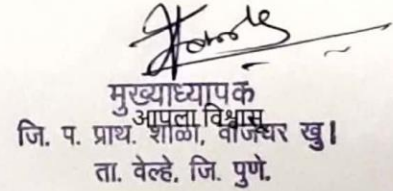 मुख्याध्यापक
आपला विश्वासू
जि. प. प्राथ. शाळा, वाजेघर खु।
ता. वेल्हे, जि. पुणे.